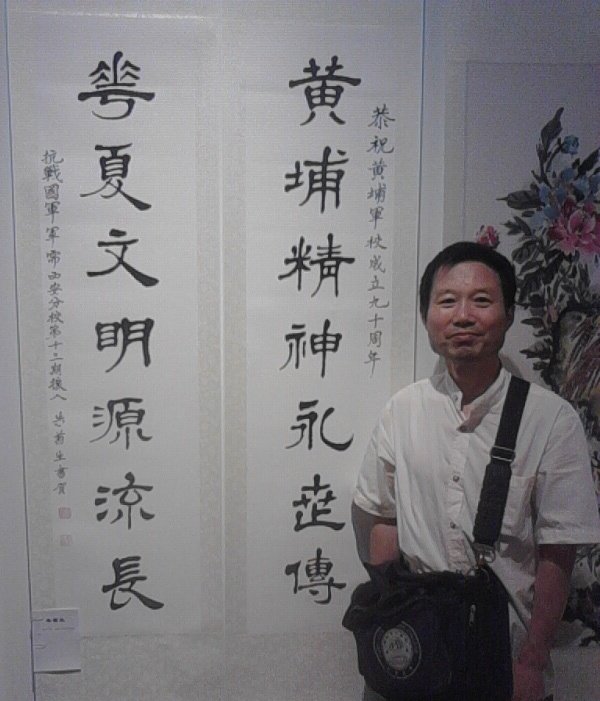 恭祝黄埔軍校成立九十周年
黄埔精神永世傳
華夏文明源流長
抗戰國軍軍需西安分校第十二期後人 生書賀